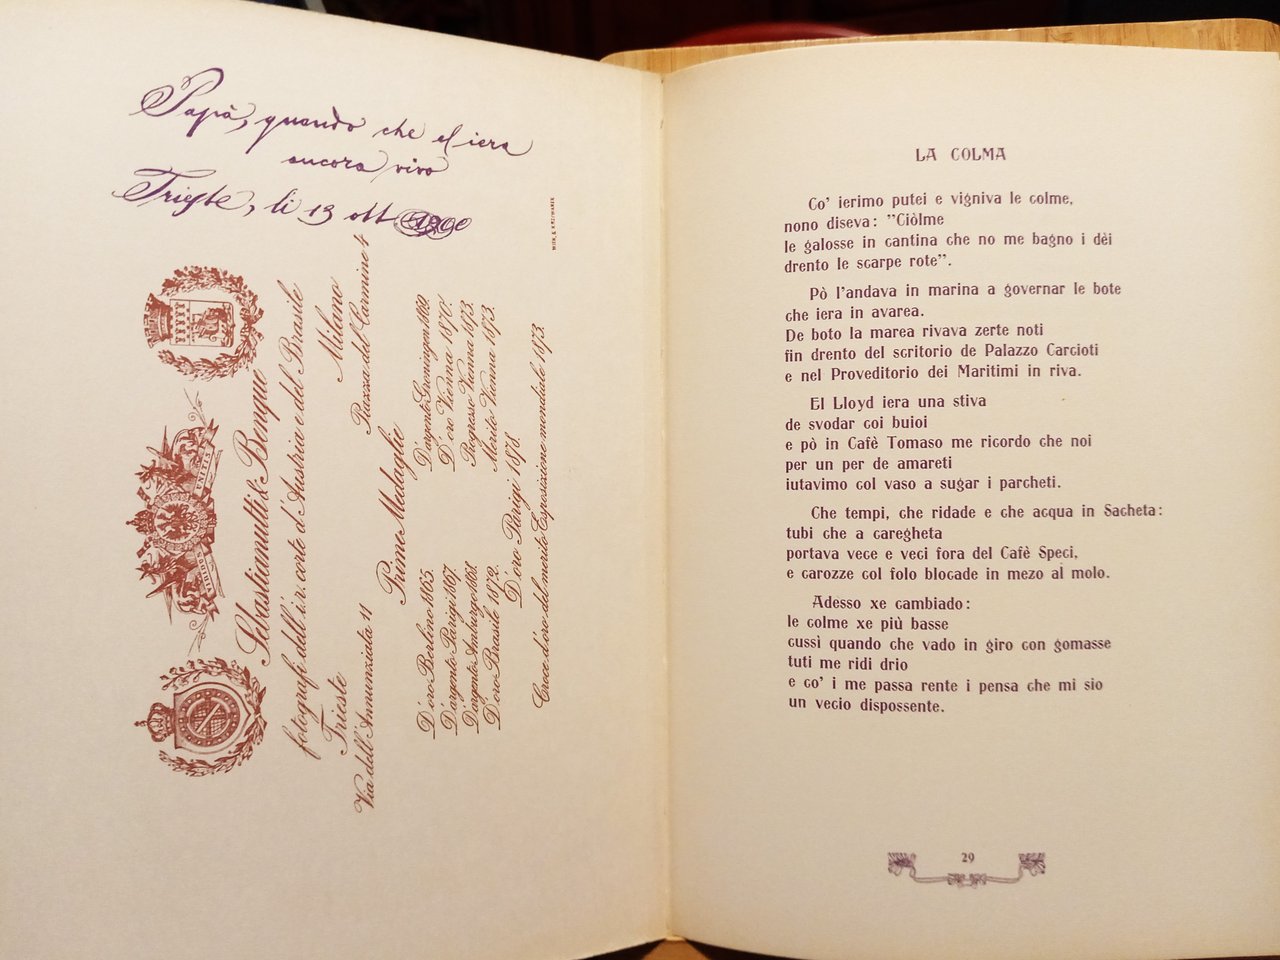 Papà, quando che el iera
ancora vivo
Trieste, li 13 ott 1900
Sebastianutti & Benque
fotografi dell'i.r. corte d'Austria e del Brasile
Trieste Milano
Via dell'Annunziata 11 Piazza del Carmine 4
Prime Medaglie
D'oro Berlino 1865. D'argento Groningen 1869.
D'argento Parigi 1867. D'oro Vienna 1870.
D'argento Amburgo 1868. Progresso Vienna 1873.
D'oro Brasile 1872. Merito Vienna 1873.
D'oro Parigi 1878.
Croce d'oro del merito Esposizione mondiale 1873.
VIRIBUS UNITIS
LA COLMA
Co' ierimo putei e vigniva le colme,
nono diseva: "Ciòlme
le galosse in cantina che no me bagno i dèi
drento le scarpe rote".
Pò l'andava in marina a governar le bote
che iera in avarea.
De boto la marea rivava zerte noti
fin drento del scritorio de Palazzo Carcioti
e nel Proveditorio dei Maritimi in riva.
El Lloyd iera una stiva
de svodar coi buioi
e pò in Cafè Tomaso me ricordo che noi
per un per de amareti
iutavimo col vaso a sugar i parcheti.
Che tempi, che ridade e che acqua in Sacheta:
tubi che a caregheta
portava vece e veci fora del Cafè Speci,
e carozze col folo blocade in mezo al molo.
Adesso xe cambiado:
le colme xe più basse
cussì quando che vado in giro con gomasse
tuti me ridi drio
e co' i me passa rente i pensa che mi sio
un vecio dispossente.
29